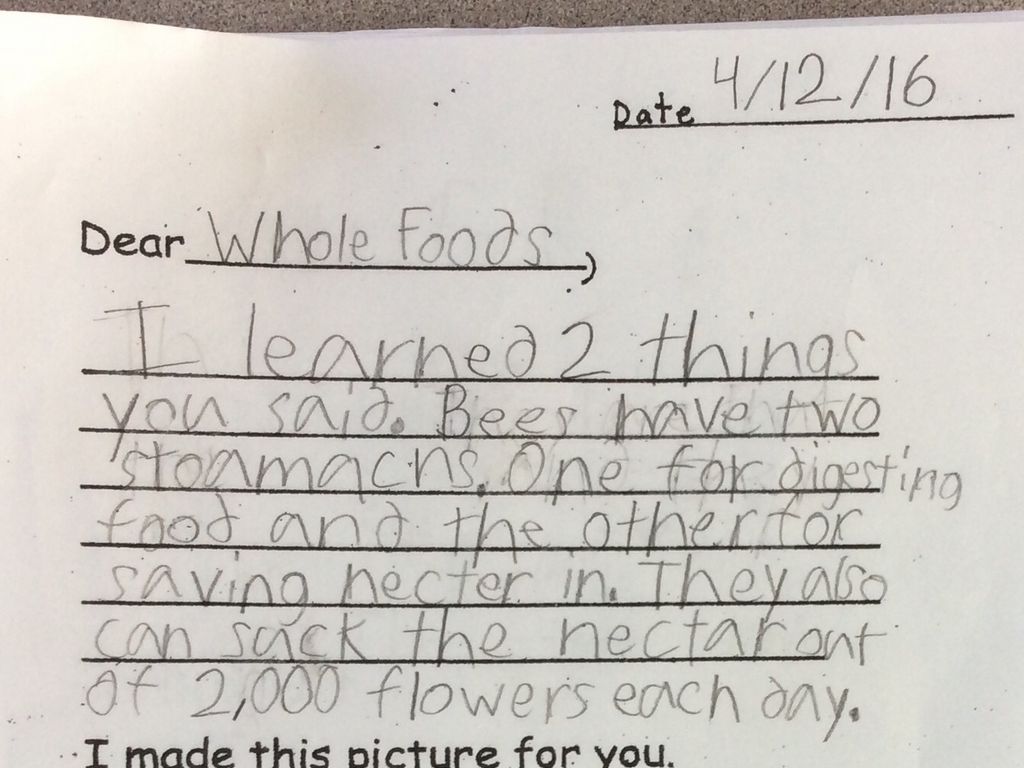 Date 4/12/16
Dear Whole Foods,
I learned 2 things
you said. Bees have two
stoamachs. One for digesting
food and the other for
saving necter in. They also
can suck the nectar out
of 2,000 flowers each day.
I made this picture for you.